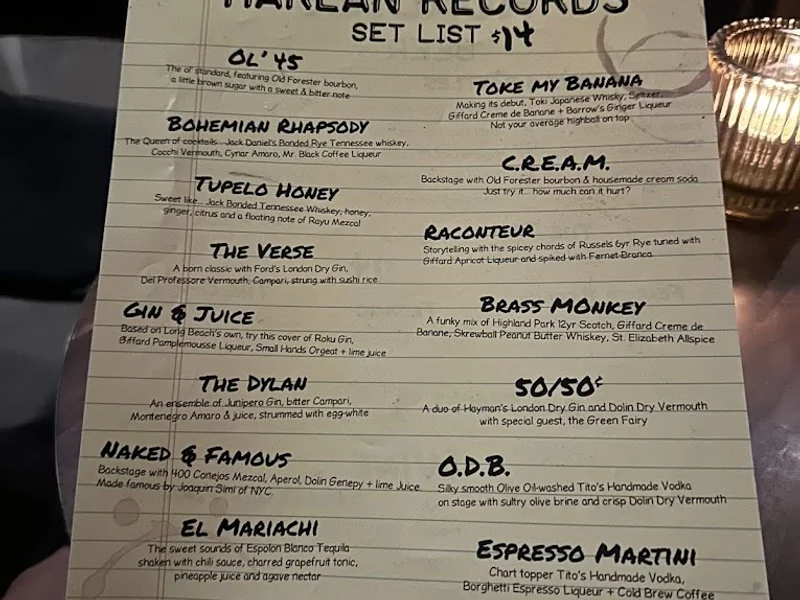 HARLAN RECORDS
SET LIST $14
OL' 45
The ol' standard, featuring Old Forester bourbon,
a little brown sugar with a sweet & bitter note
BOHEMIAN RHAPSODY
The Queen of cocktails... Jack Daniel's Bonded Rye Tennessee whiskey,
Cocchi Vermouth, Cynar Amaro, Mr. Black Coffee Liqueur
TUPELO HONEY
Sweet like... Jack Bonded Tennessee Whiskey, honey,
ginger, citrus and a floating note of Rayu Mezcal
THE VERSE
A born classic with Ford's London Dry Gin,
Del Professore Vermouth, Campari, strung with sushi rice
GIN & JUICE
Based on Long Beach's own, try this cover of Roku Gin,
Giffard Pamplemousse Liqueur, Small Hands Orgeat + lime juice
THE DYLAN
An ensemble of Junipero Gin, bitter Campari,
Montenegro Amaro & juice, strummed with egg-white
NAKED & FAMOUS
Backstage with 400 Conejos Mezcal, Aperol, Dolin Genepy + lime Juice.
Made famous by Joaquin Simi of NYC
EL MARIACHI
The sweet sounds of Espolon Blanco Tequila
shaken with chili sauce, charred grapefruit tonic,
pineapple juice and agave nectar
TOKE MY BANANA
Making its debut, Toki Japanese Whisky, Seltzer,
Giffard Creme de Banane + Barrow's Ginger Liqueur
Not your average highball on top
C.R.E.A.M.
Backstage with Old Forester bourbon & housemade cream soda
Just try it... how much can it hurt?
RACONTEUR
Storytelling with the spicey chords of Russels 6yr Rye tuned with
Giffard Apricot Liqueur and spiked with Fernet-Branca
BRASS MONKEY
A funky mix of Highland Park 12yr Scotch, Giffard Creme de
Banane, Skrewball Peanut Butter Whiskey, St. Elizabeth Allspice
50/50¢
A duo of Hayman's London Dry Gin and Dolin Dry Vermouth
with special guest, the Green Fairy
O.D.B.
Silky smooth Olive Oil-washed Tito's Handmade Vodka
on stage with sultry olive brine and crisp Dolin Dry Vermouth
ESPRESSO MARTINI
Chart topper Tito's Handmade Vodka,
Borghetti Espresso Liqueur + Cold Brew Coffee